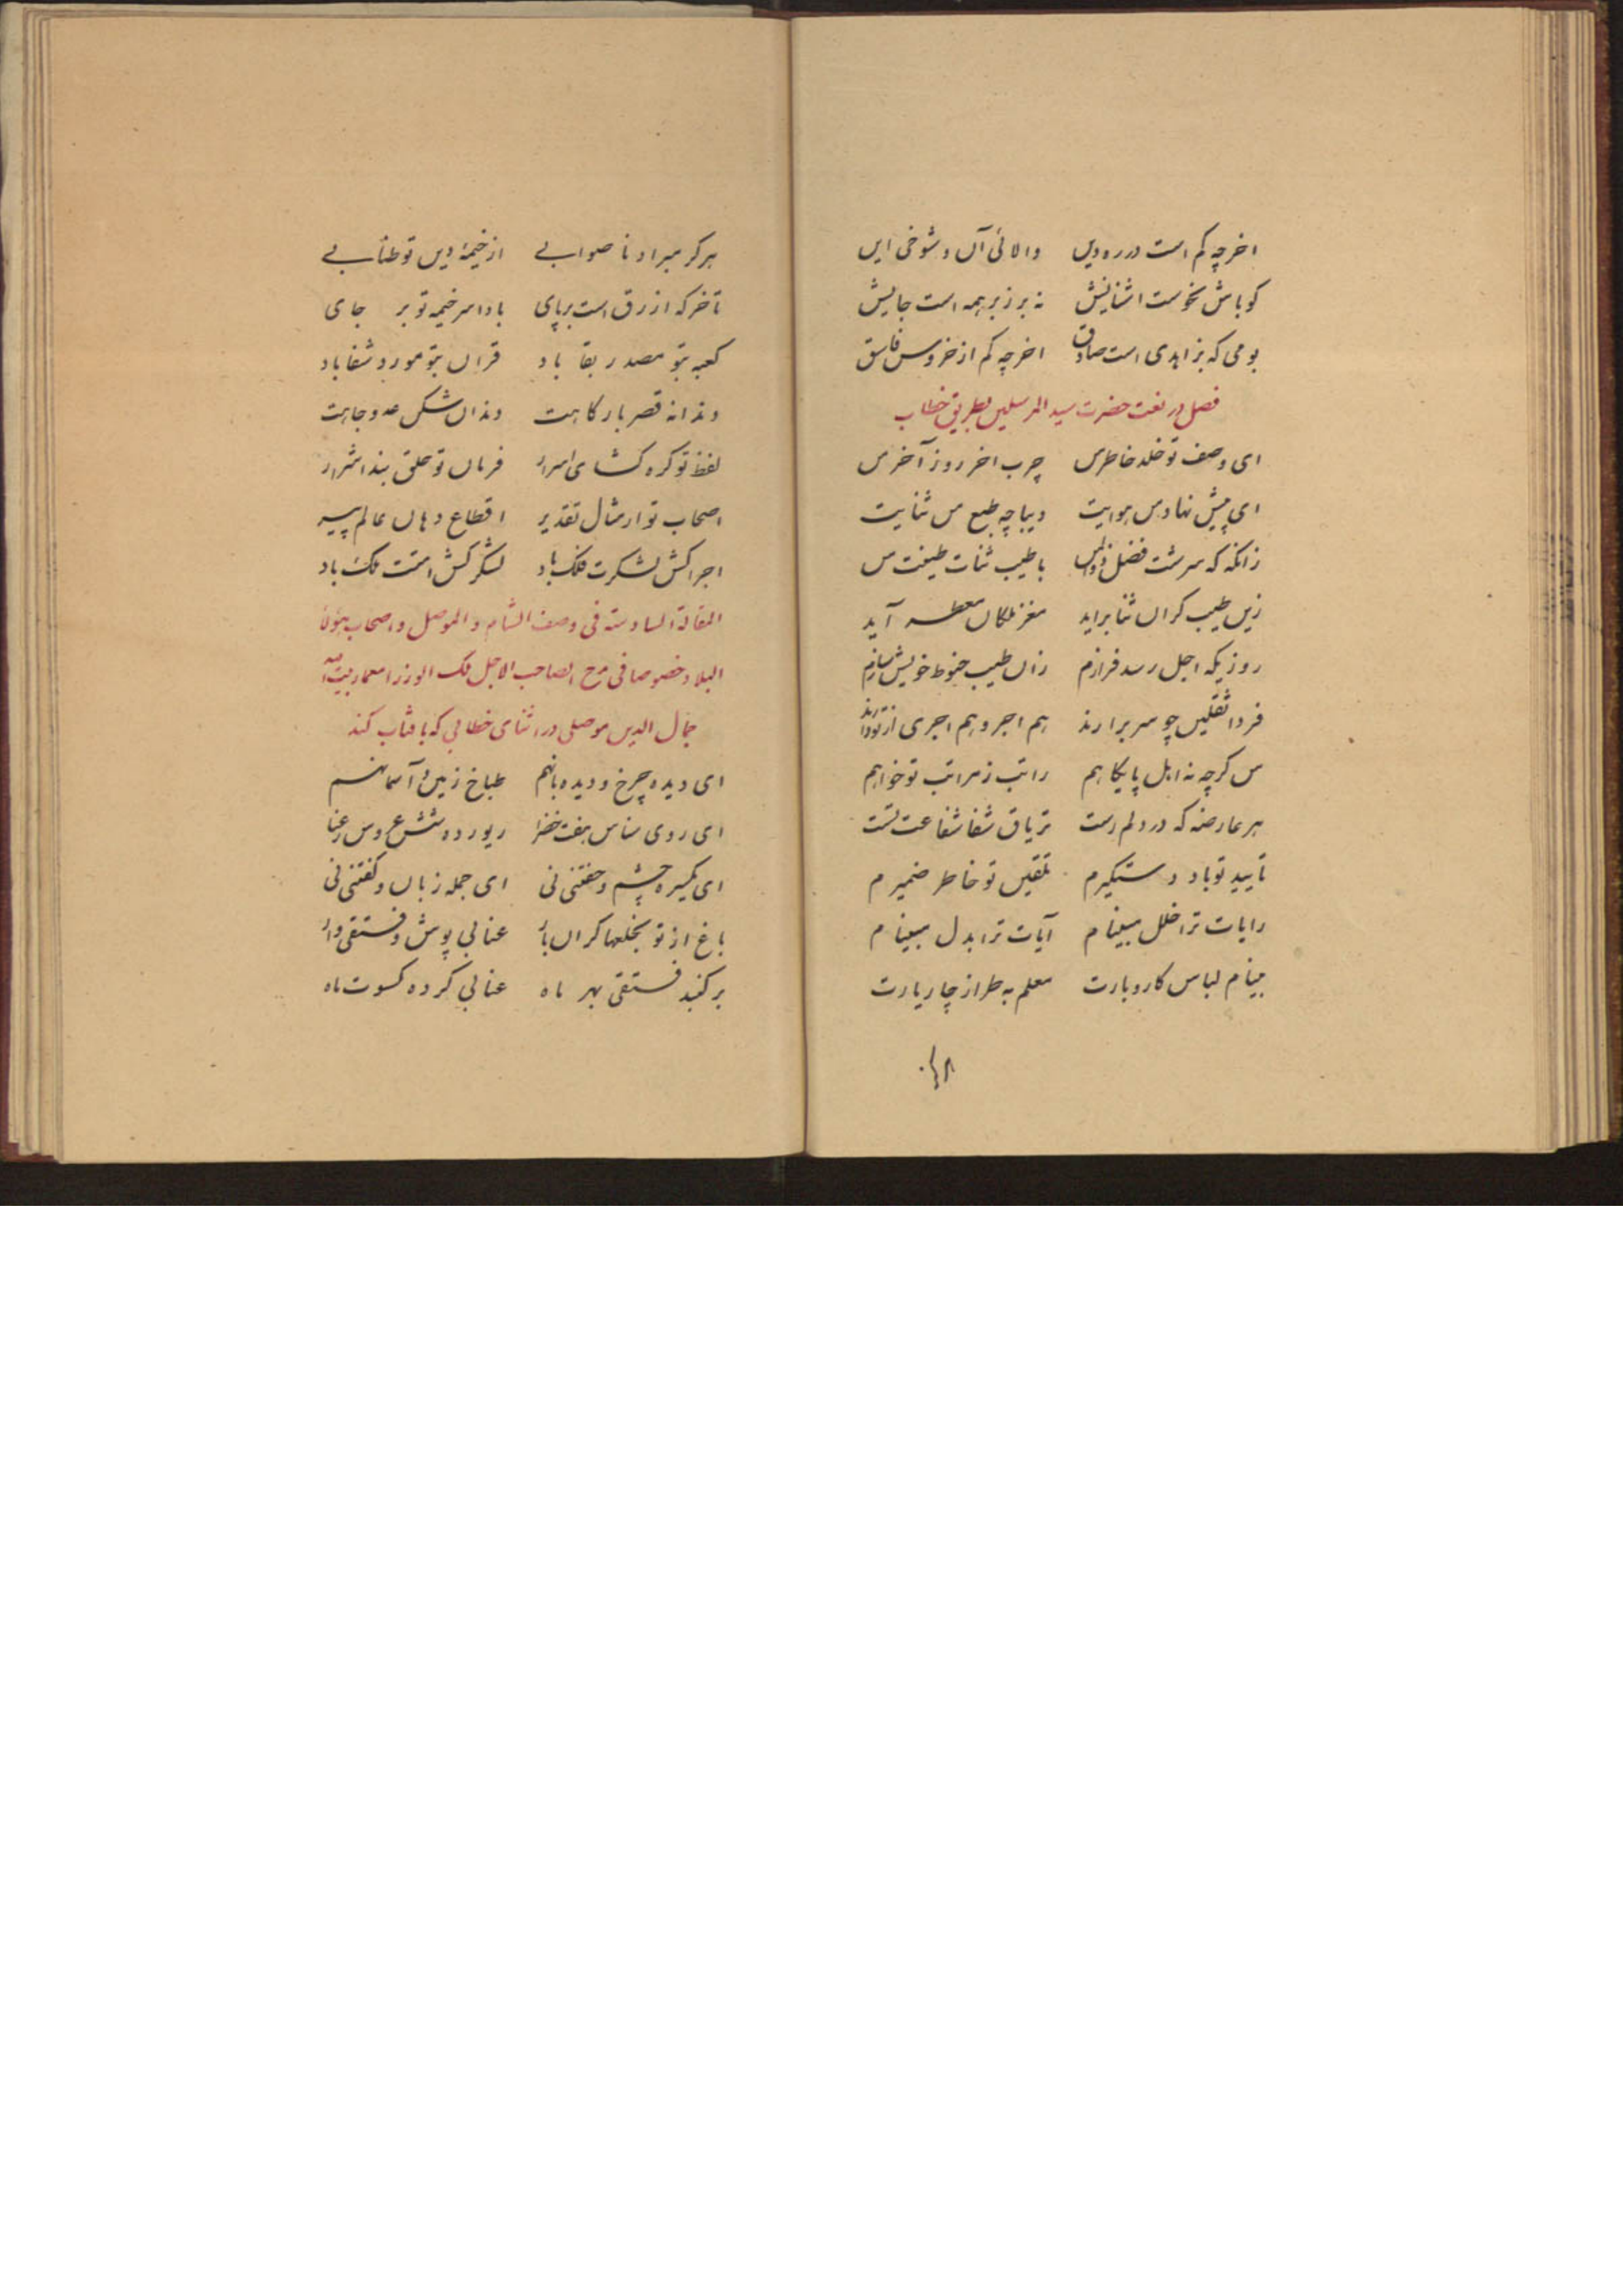 اخر چه کم است در ره دین والائی آن و شوخی این
کو باش نحوست اشنایش نه بر زبر همه است جایش
بومی که بزاهدی است صادق اخر چه کم از خروس فاسق
فصل در نعت حضرت سید المرسلین بطریق خطاب
ای وصف تو خلد خاطر من چرب اخر روز آخر من
ای پیش نهاد من هوایت دیباچه طبع من ثنایت
زانکه که سرشت فضل ذوالمن با طیب ثنات طینت من
زین طیب کران ثنا براید مغز ملکان معطر آید
روزیکه اجل رسد فرازم زان طیب حنوط خویش سازم
فردا ثقلین چو سر برارند هم اجر و هم اجری از تو دارند
من کرچه نه اهل پایکاهم راتب ز مراتب تو خواهم
هر عارضه که در دلم رست تریاق شفا شفاعت تست
تایید تو باد دستکیرم تلقین تو خاطر ضمیرم
رایات ترا خلل مبینام آیات ترا بدل مبینام
بینام لباس کار و بارت معلم به طراز چار یارت
هرکز مبراد ناصوابے از خیمهٔ دین تو طنابے
تا خرکه ازرق است برپای بادا سر خیمه تو بر جای
کعبه بتو مصدر بقا باد قران بتو مورد شفا باد
دندانه قصر بارکاهت دندان شکن عدو جاهت
لفظ تو کره کشای اسرار فرمان تو حلق بند اشرار
اصحاب تو از مثال تقدیر اقطاع دهان عالم پیر
اجرا کش لشکرت فلک باد لشکر کش امتت ملک باد
المقالة السادسته فی وصف الشام و الموصل و اصحاب هؤلا
البلاد خصوصا فی مدح الصاحب الاجل ملک الوزرا معمار بیت الله
جمال الدین موصلی در اثنای خطابی که با افتاب کند
ای دیده چرخ و دیده بانهم طباخ زمین و آسمانهم
ای روی شناس هفت خضرا زیور ده شش عروس رعنا
ای یکسره چشم و خفتنی نی ای جمله زبان و کفتنی نی
باغ از تو بخلعها کران بار عنابی پوش و فستقی دار
بر کنبد فستقی بهر ماه عنابی کرده کسوت ماه